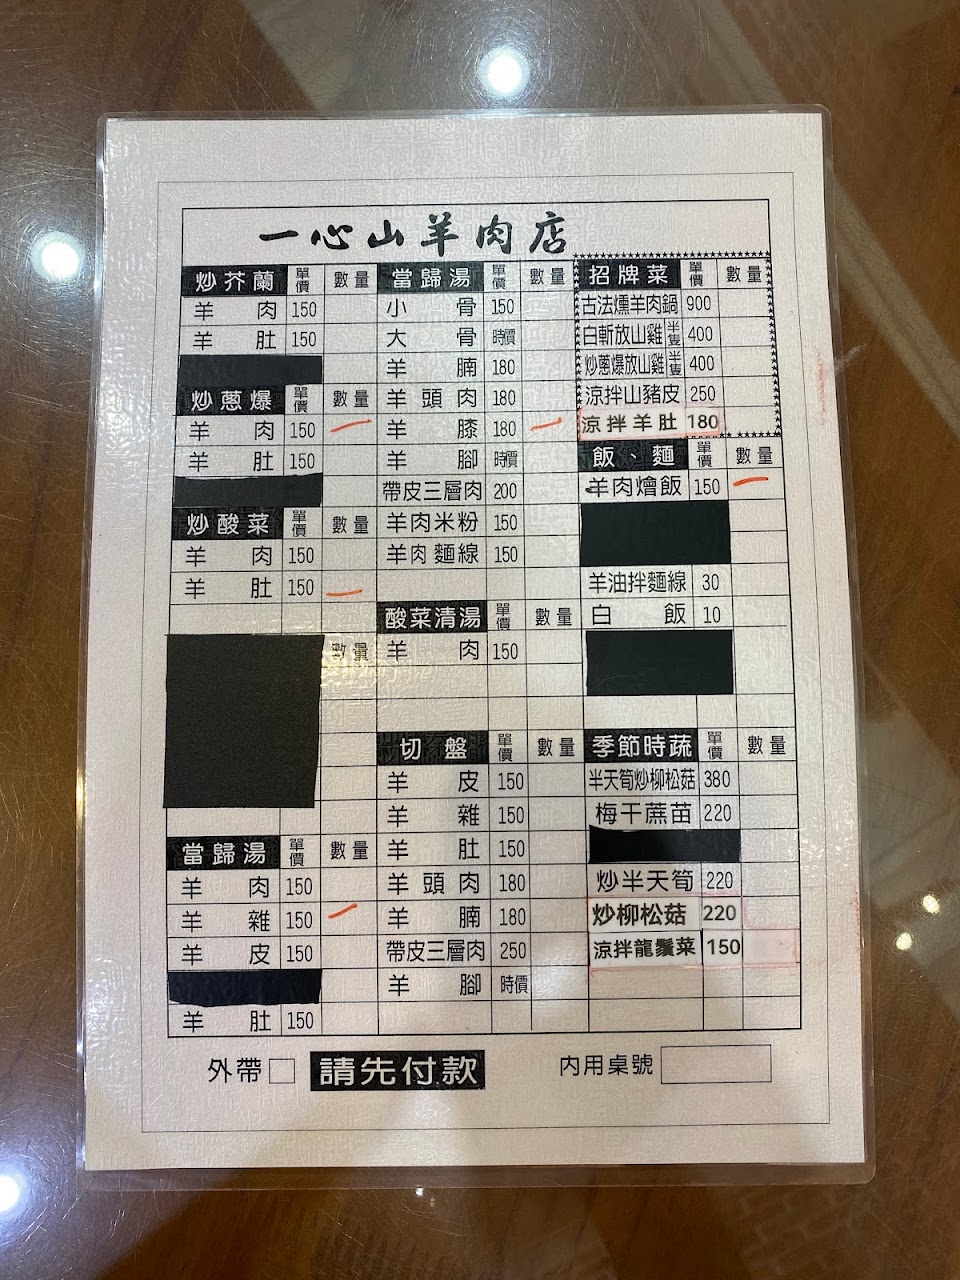 一心山羊肉店
炒芥蘭 單價 數量
羊肉 150
羊肚 150
炒蔥爆 單價 數量
羊肉 150
羊肚 150
炒酸菜 單價 數量
羊肉 150
羊肚 150
數量
當歸湯 單價 數量
羊肉 150
羊雜 150
羊皮 150
羊肚 150
當歸湯 單價 數量
小骨 150
大骨 時價
羊腩 180
羊頭肉 180
羊膝 180
羊腳 時價
帶皮三層肉 200
羊肉米粉 150
羊肉麵線 150
酸菜清湯 單價 數量
羊肉 150
切盤 單價 數量
羊皮 150
羊雜 150
羊肚 150
羊頭肉 180
羊腩 180
帶皮三層肉 250
羊腳 時價
招牌菜 單價 數量
古法燻羊肉鍋 900
白斬放山雞半隻 400
炒蔥爆放山雞半隻 400
涼拌山豬皮 250
涼拌羊肚 180
飯、麵 單價 數量
羊肉燴飯 150
羊油拌麵線 30
白飯 10
季節時蔬 單價 數量
半天筍炒柳松菇 380
梅干蕨苗 220
炒半天筍 220
炒柳松菇 220
涼拌龍鬚菜 150
外帶 請先付款 內用桌號